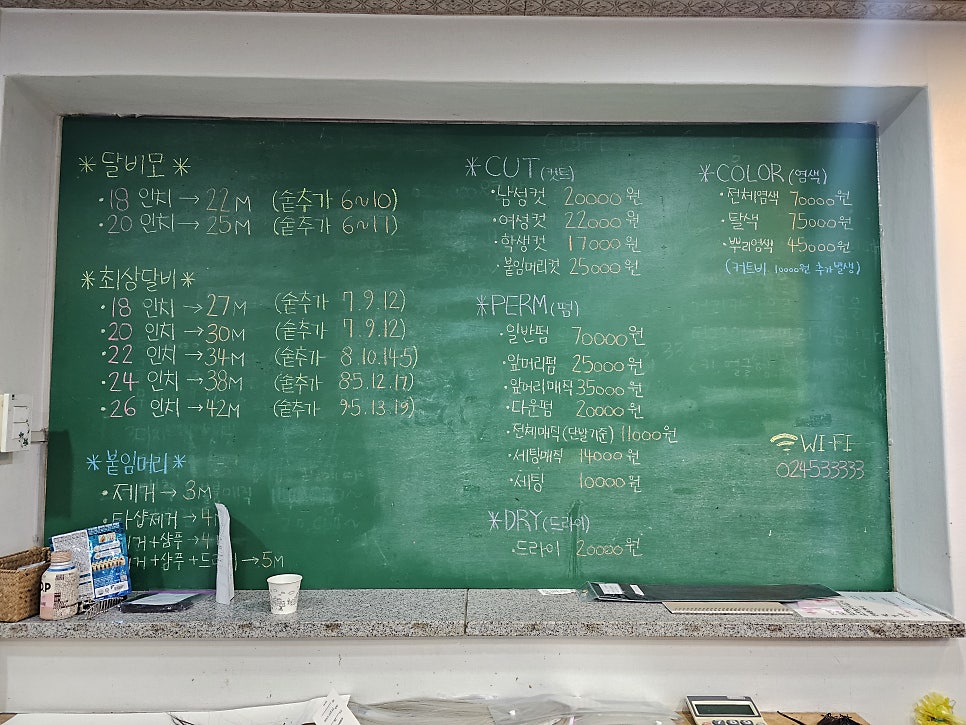 *달비모*
·18 인치→22M (숱추가 6~10)
·20 인치→25M (숱추가 6~11)
*최상달비*
·18 인치→27M (숱추가 7.9.12)
·20 인치→30M (숱추가 7.9.12)
·22 인치→34M (숱추가 8.10.14.5)
·24 인치→38M (숱추가 8.5.12.17)
·26 인치→42M (숱추가 9.5.13.19)
*붙임머리*
·제거→3M
·타샵제거→4M
거+샴푸→4
거+샴푸+드 →5M
*CUT(컷트)
·남성컷 20000원
·여성컷 22000원
·학생컷 17000원
·붙임머리컷 25000원
*PERM(펌)
·일반펌 70000원
·앞머리펌 25000원
·앞머리매직35000원
·다운펌 20000원
·전체매직(단발기준) 11000원
·세팅매직 14000원
·세팅 10000원
*DRY(드라이)
·드라이 20000원
*COLOR(염색)
·전체염색 70000원
·탈색 75000원
·뿌리염색 45000원
(커트비 10000원 추가발생)
WI-FI
024533333